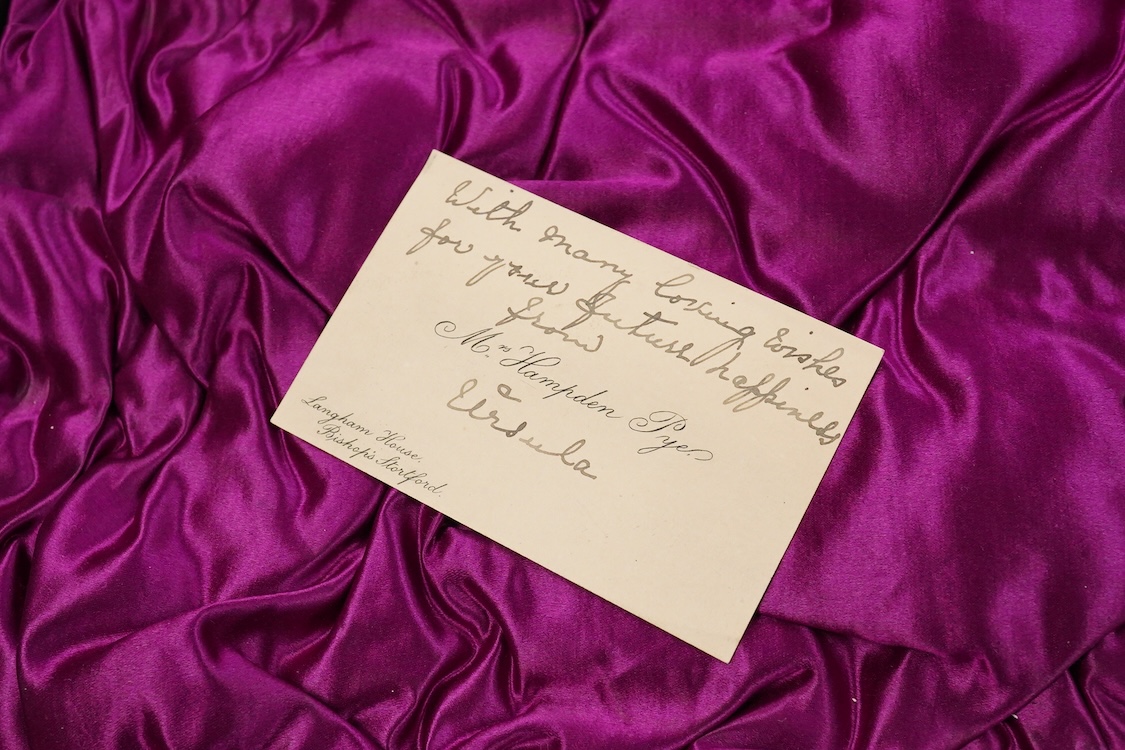 With many loving wishes
for your future happiness
from
Mrs Hampden Pye.
&
Ursula
Langham House,
Bishop's Stortford.